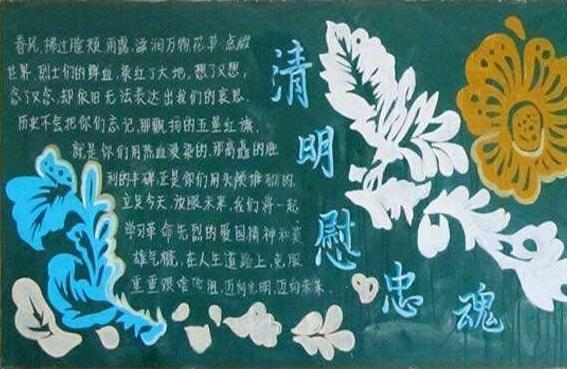 清明慰忠魂
春风拂过脸颊,雨露滋润万物,花草点缀
世界,烈士们的鲜血,染红了大地,想了又想,
念了又念,却依旧无法表达出我们的哀思.
历史不会把你们忘记,那飘扬的五星红旗,
就是你们用热血浸染的,那高矗的胜
利的丰碑,正是你们用头颅堆砌的.
立足今天,放眼未来,我们将一起
学习革命先烈的爱国精神和英
雄气概,在人生道路上,克服
重重艰难险阻,迈向光明,迈向未来.